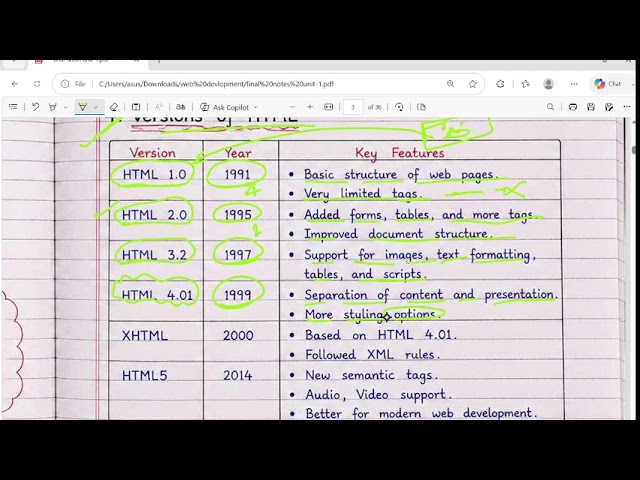 File
C:/Users/asus/Downloads/web%20devlopment/final%20notes%20unit-1.pdf
Chat
Ask Copilot
3 of 36
1. Versions of HTML
Version Year Key Features
HTML 1.0 1991 • Basic structure of web pages.
• Very limited tags.
4
HTML 2.0 1995 • Added forms, tables, and more tags.
• Improved document structure.
2
HTML 3.2 1997 • Support for images, text formatting,
tables, and scripts.
HTML 4.01 1999 • Separation of content and presentation.
• More styling options.
XHTML 2000 • Based on HTML 4.01.
• Followed XML rules.
HTML5 2014 • New semantic tags.
• Audio, Video support.
• Better for modern web development.